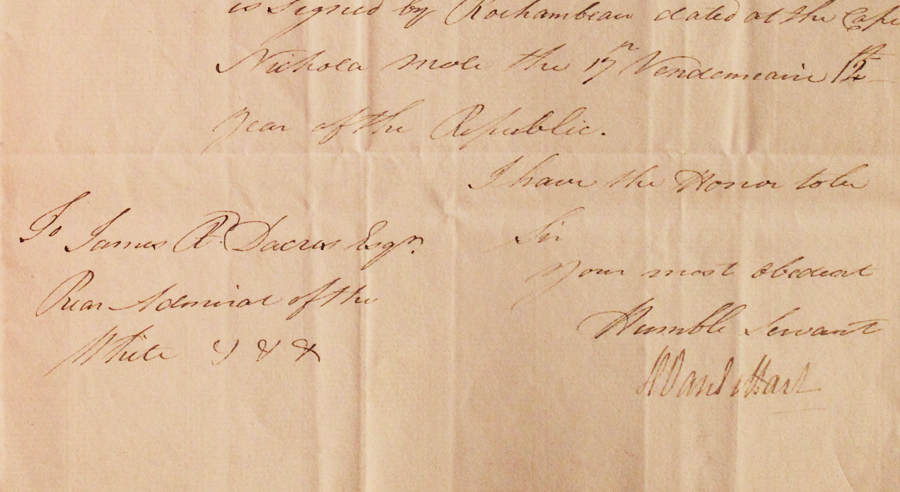 is signed by Rochambeau dated at the Cape
Nichola Mole the 17th Vendemeaire 12th
year of the Republic.
I have the Honor to be
Sir
Your most obedient
Humble Servant
To James R. Dacres Esqr.
Rear Admiral of the
White & & &